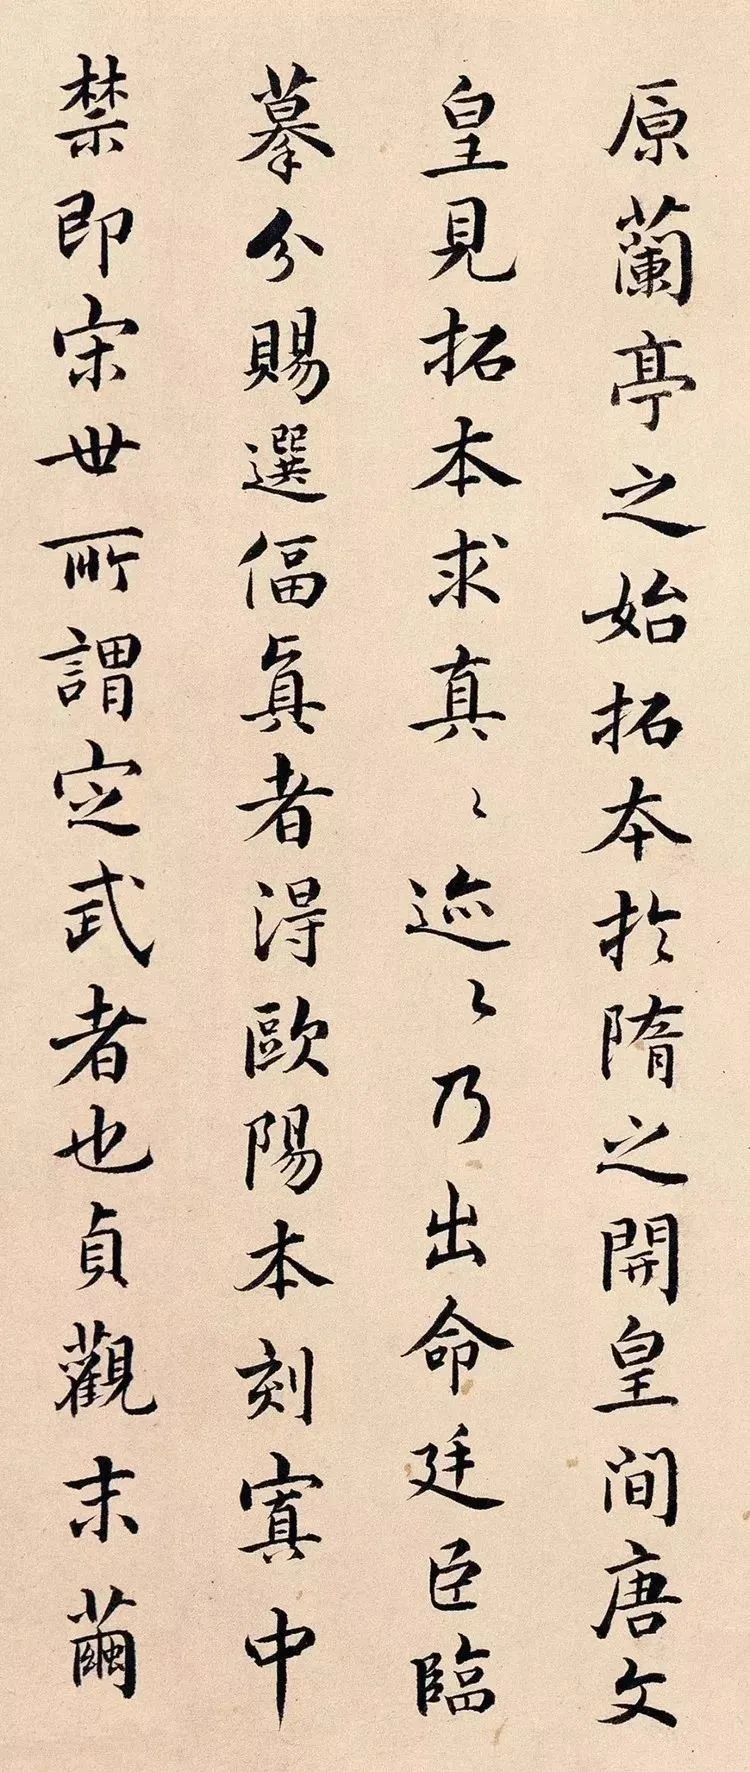 原蘭亭之始拓本於隋之開皇間唐文
皇見拓本求真〻迹〻乃出命廷臣臨
摹分賜選偪真者得歐陽本刻寘中
禁即宋世所謂定武者也貞觀末繭